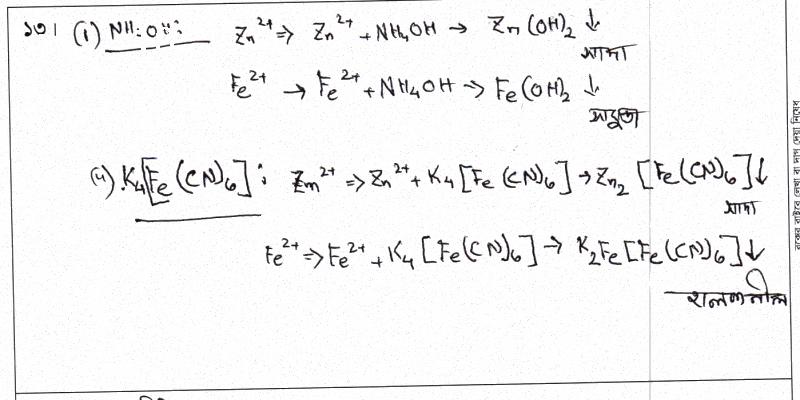 ১৩। (i) NH₄OH: Zn²⁺ ⇒ Zn²⁺ + NH₄OH → Zn(OH)₂ ↓
সাদা
Fe²⁺ → Fe²⁺ + NH₄OH → Fe(OH)₂ ↓
সবুজ
(ii) K₄[Fe(CN)₆]: Zn²⁺ ⇒ Zn²⁺ + K₄[Fe(CN)₆] → Zn₂[Fe(CN)₆]↓
সাদা
Fe²⁺ ⇒ Fe²⁺ + K₄[Fe(CN)₆] → K₂Fe[Fe(CN)₆]↓
হালকা নীল